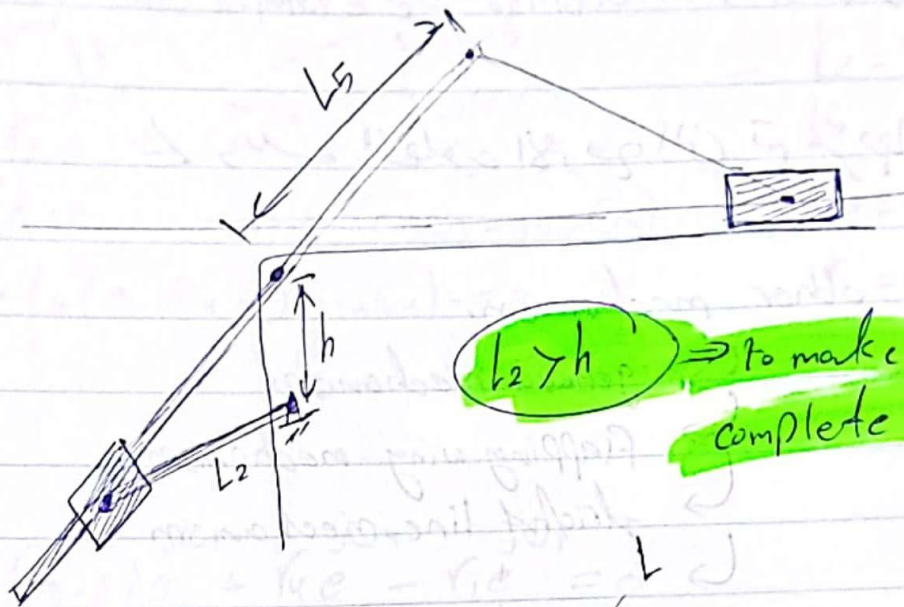 L5
h
L2 > h ⇒ to make
complete
L2
L